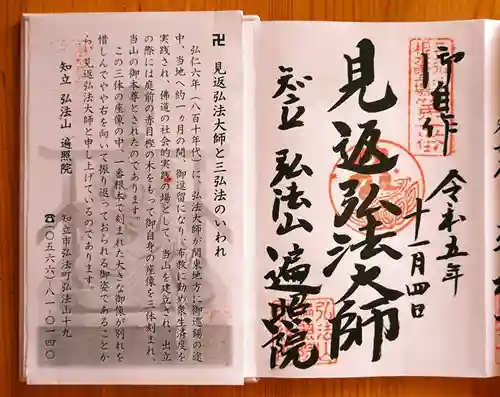 卍 見返弘法大師と三弘法のいわれ
弘仁六年（八百十年代）に、弘法大師が関東地方に御巡錫の途
中、当地へ約一カ月の間、御逗留になり、布教に勤め衆生済度を
実践され、佛道の社会的実践の場として、当山を建立され、出立
の際には庭前の赤目樫の木をもって御自身の座像を三体刻まれ、
当山の御本尊とされたのであります。
この三体の座像の中、一番根本で刻まれた大きな御像が別れを
惜しんでやや右を向いて振り返っておられる御姿であることか
ら、見返弘法大師と申し上げているのであります。
知立 弘法山 遍照院
知立市弘法町弘法山十九
☎（〇五六六）八一-〇一四〇
御自作
令和五年
十一月四日
見返弘法大師
知立 弘法山 遍照院